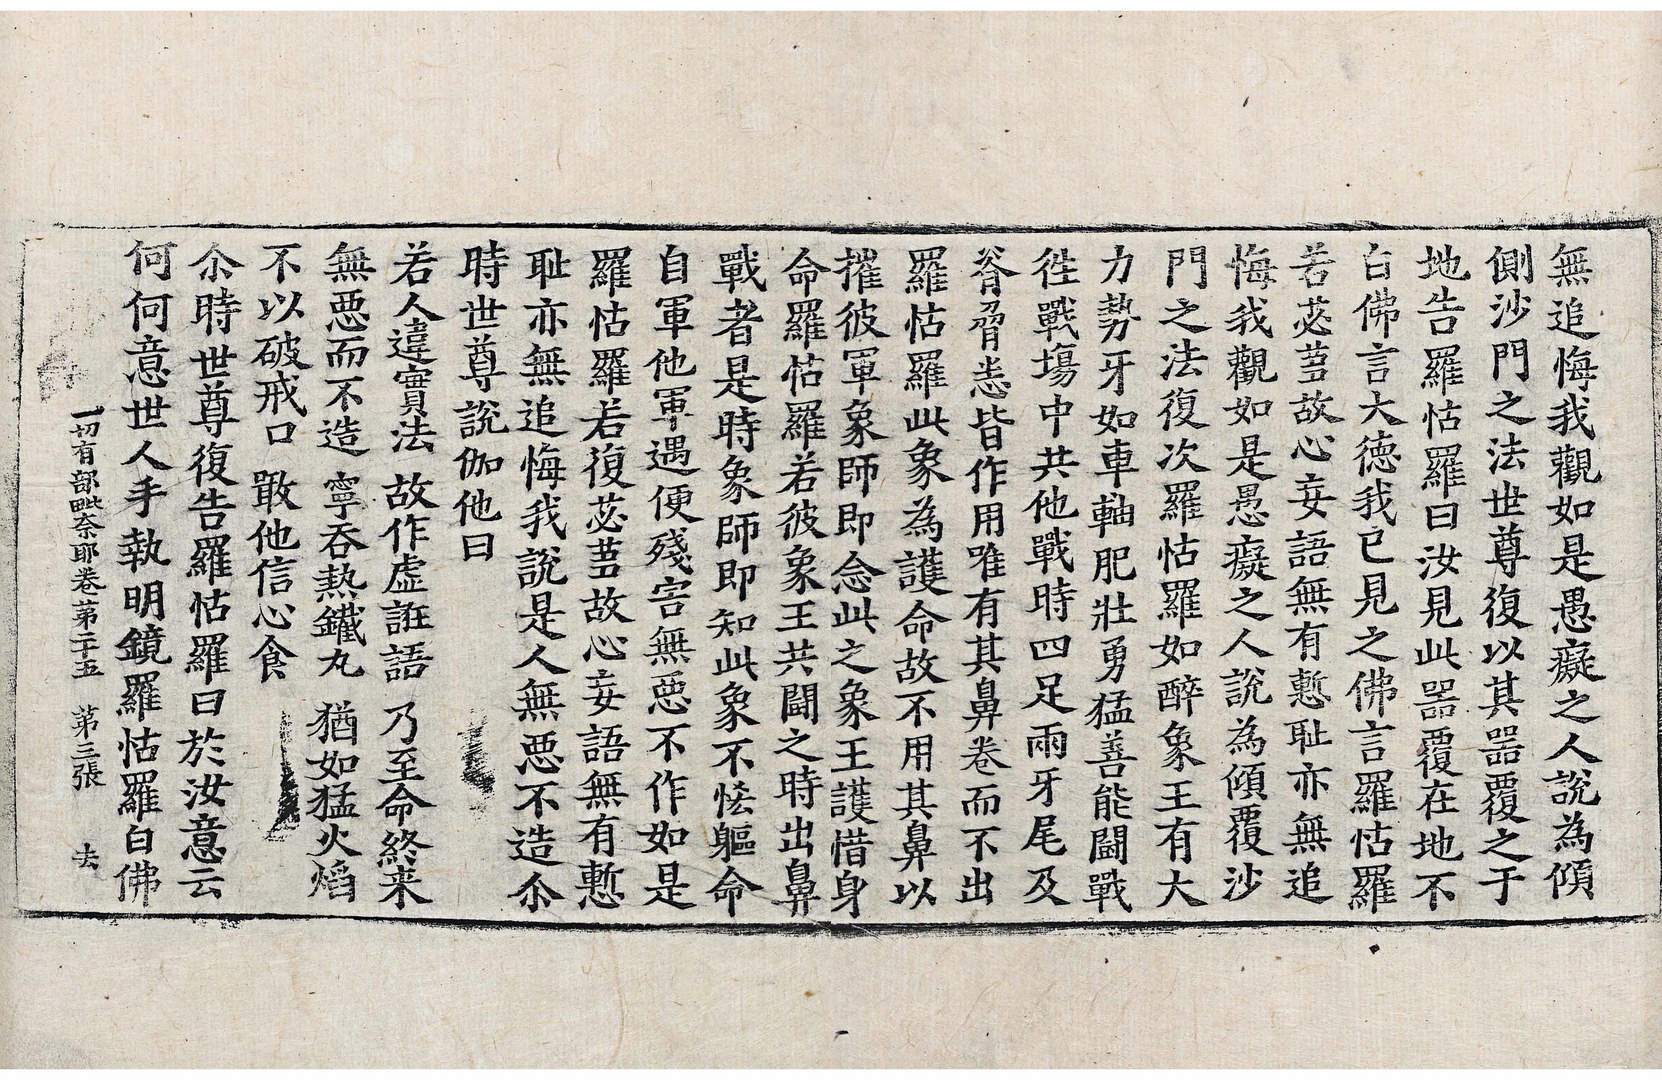 無追悔我觀如是愚癡之人說為傾
側沙門之法世尊復以其器覆之于
地告羅怙羅曰汝見此器覆在地不
白佛言大德我已見之佛言羅怙羅
若苾芻故心妄語無有慙耻亦無追
悔我觀如是愚癡之人說為傾覆沙
門之法復次羅怙羅如醉象王有大
力勢牙如車軸肥壯勇猛善能鬪戰
往戰場中共他戰時四足兩牙尾及
脊脅恙皆作用唯有其鼻卷而不出
羅怙羅此象為護命故不用其鼻以
摧彼軍象師即念此之象王護惜身
命羅怙羅若彼象王共鬪之時出鼻
戰者是時象師即知此象不恡軀命
自軍他軍遇便殘害無惡不作如是
羅怙羅若復苾芻故心妄語無有慙
耻亦無追悔我說是人無惡不造尒
時世尊說伽他曰
若人違實法 故作虛誑語 乃至命終来
無惡而不造 寧吞熱鐵丸 猶如猛火焰
不以破戒口 敢他信心食
尒時世尊復告羅怙羅曰於汝意云
何何意世人手執明鏡羅怙羅白佛
一切有部毗奈耶卷第二十五 第三張 去